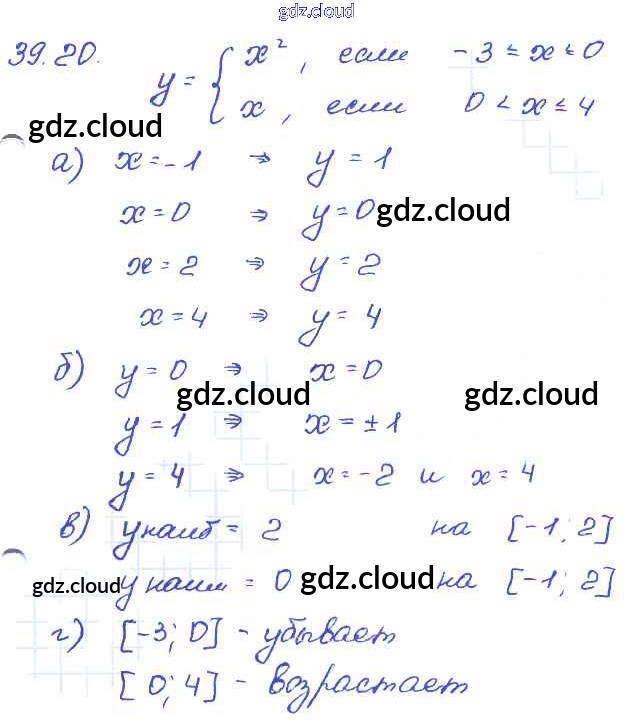 gdz.cloud
39.20.
y = { x², если -3 ≤ x ≤ 0
x, если 0 < x ≤ 4
gdz.cloud
а) x = -1 ⇒ y = 1
x = 0 ⇒ y = 0 gdz.cloud
x = 2 ⇒ y = 2
x = 4 ⇒ y = 4
б) y = 0 ⇒ x = 0
gdz.cloud gdz.cloud
y = 1 ⇒ x = ±1
y = 4 ⇒ x = -2 и x = 4
в) y наиб = 2 на [-1; 2]
gdz.cloud y наим = 0 gdz.cloud на [-1; 2]
г) [-3; 0] - убывает
[0; 4] - возрастает